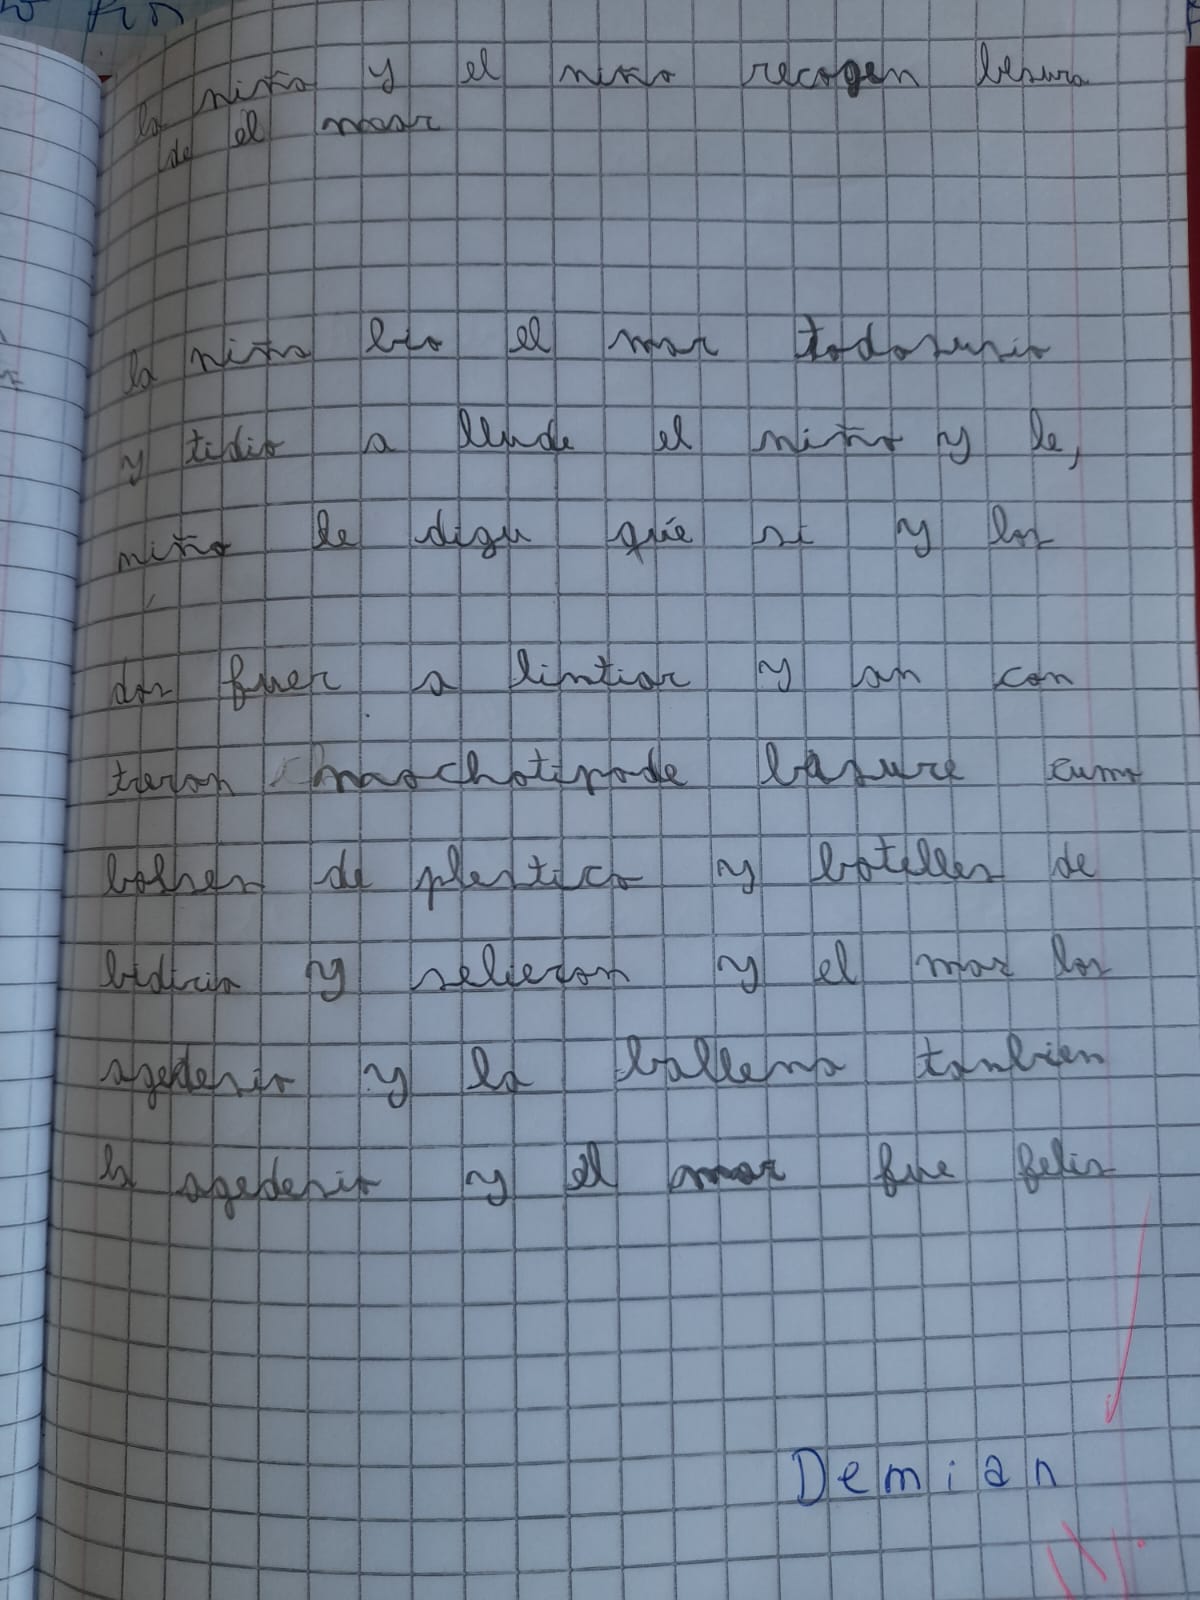 la niña y el niño recogen besura
de el maar
la niña bio el mar todosusio
y tidio a llude el niño y le,
niño le digu que si y los
dos fuer a lintiar y an con
traron muochotipode basure cumo
bolses de plestico y botelles de
bidicio y selieron y el mar los
agedesio y la ballena tanbien
lo agedesio y el mar fue felis
Demian